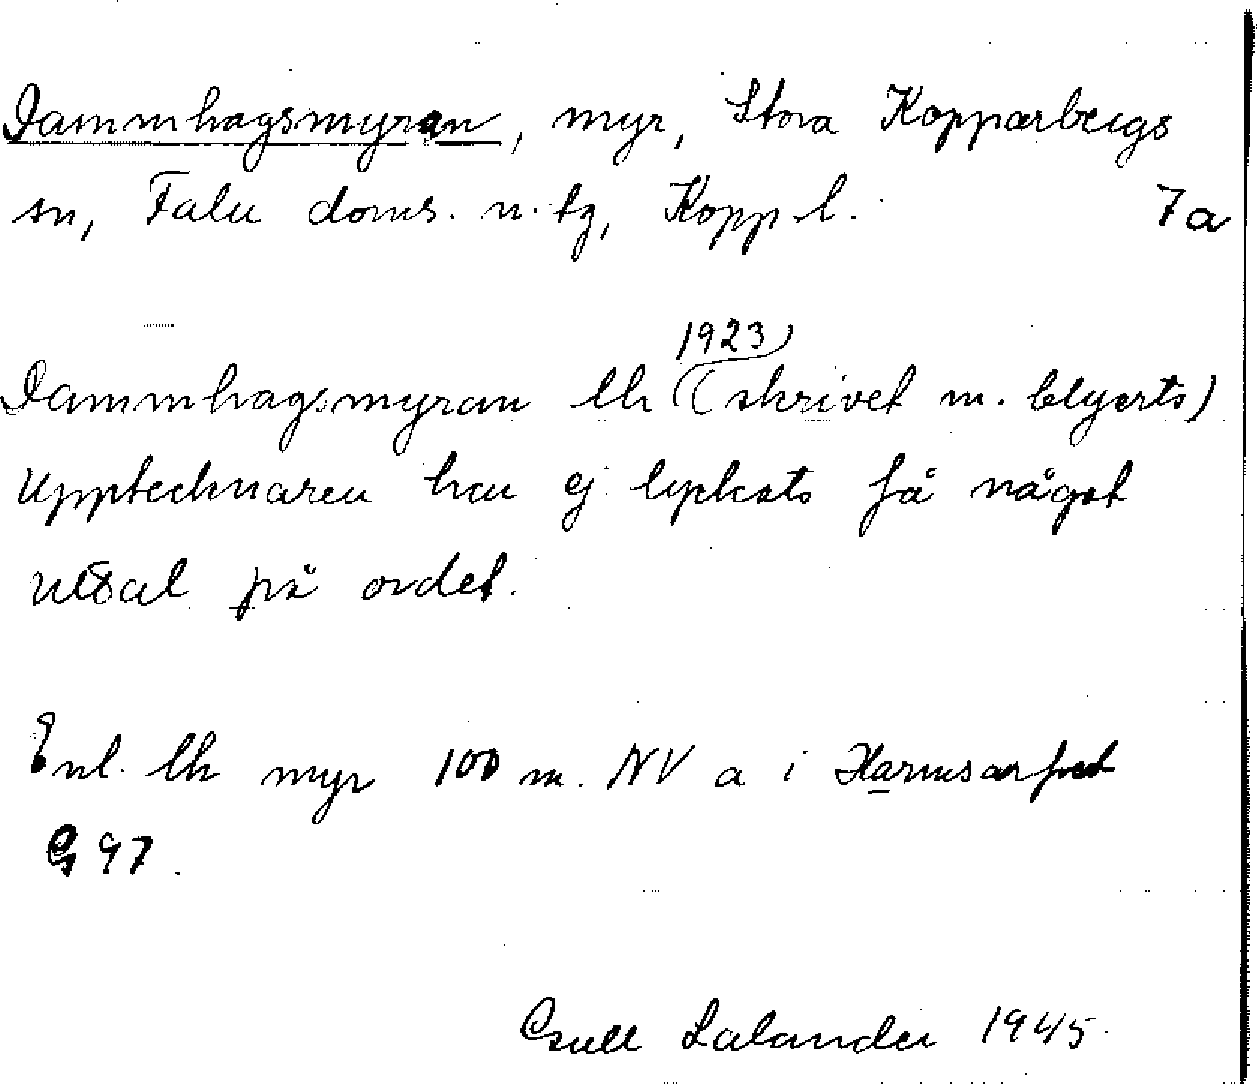 Dammhagsmyran, myr, Stora Kopparbergs
sn, Falu doms. n. tg, Kopp. l. 7a
1923
Dammhagsmyran lh (skrivet m. blyerts)
Upptecknaren har ej lyckats få något
uttal på ordet.
Enl. lh myr 100 m. NV a i Harmsarfvet
G 97.
Gull Lalander 1945.